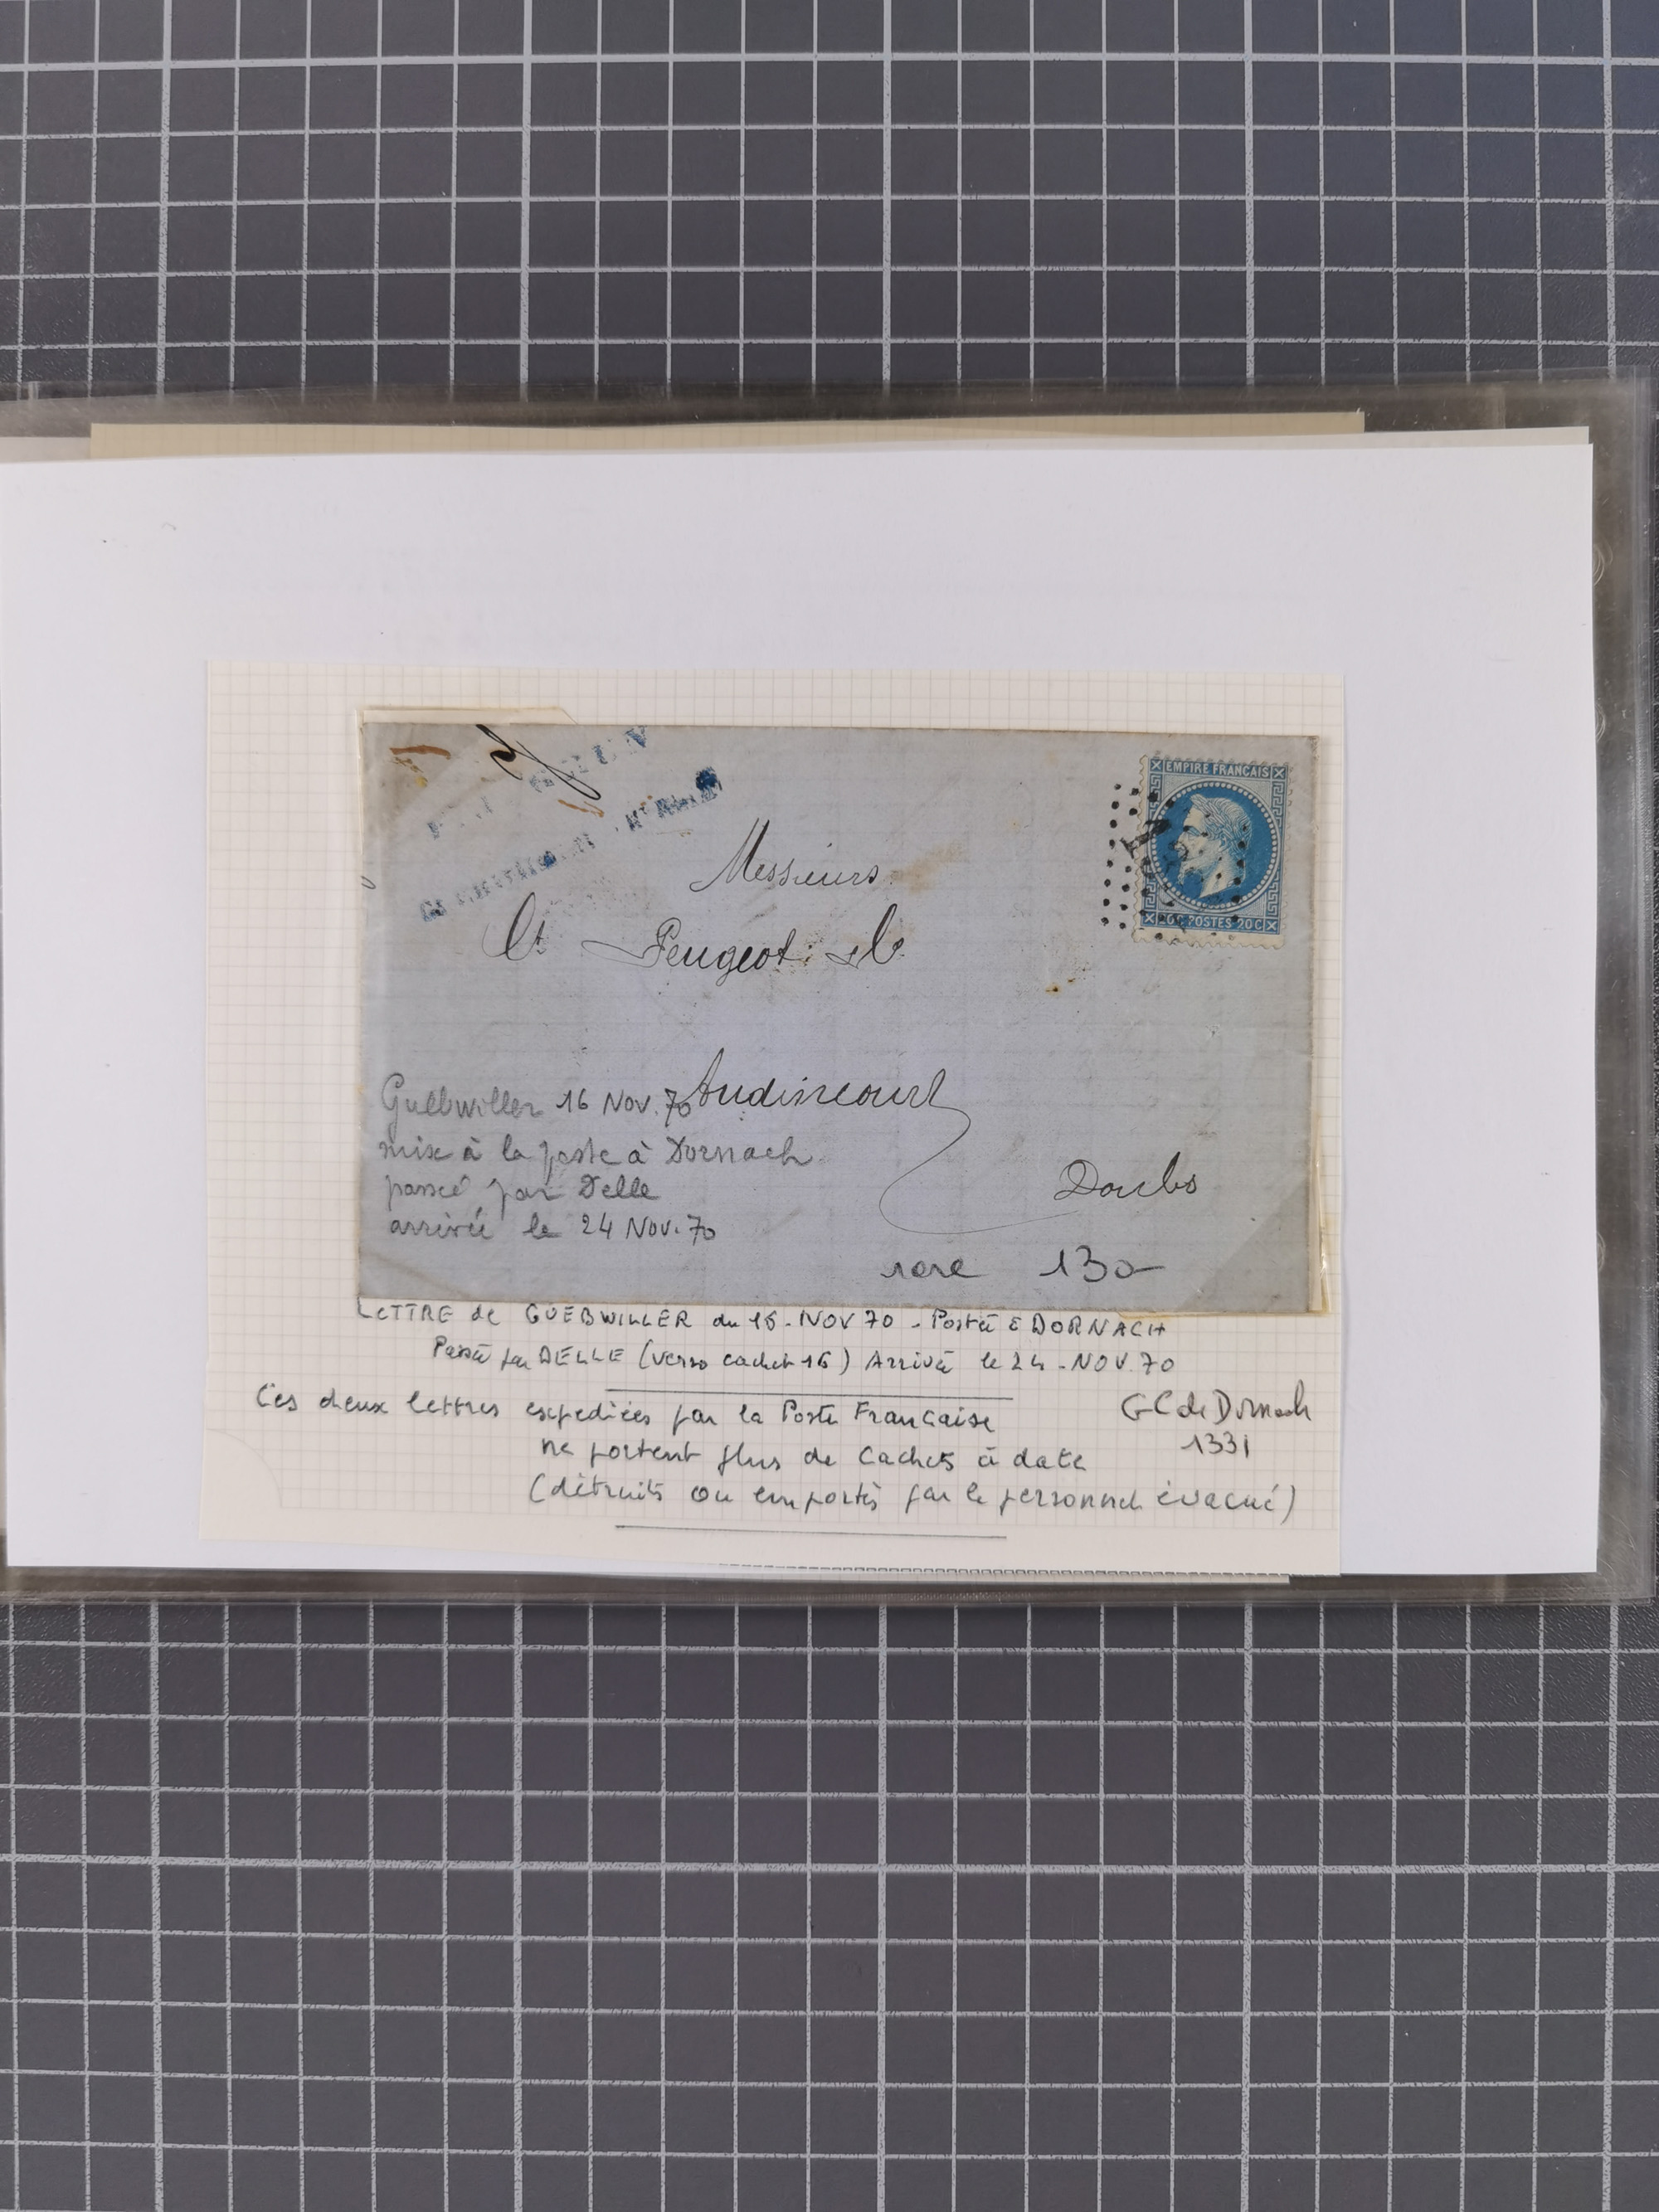 Messieurs
Ct Peugeot & C
Audincourt
Doubs
EMPIRE FRANCAIS
20C POSTES 20C
Guebwiller 16 Nov. 70
mise à la poste à Dornach
passé par Delle
arrivée le 24 Nov. 70
rare 130-
LETTRE de GUEBWILLER du 16-NOV 70 - Postée à DORNACH
Passée par DELLE (verso cachet 16) Arrivée le 24-NOV.70
Ces deux lettres expediées par la Poste Francaise
ne portent plus de cachets à date
(détruits ou emportés par le personnel évacué)
GC de Dornach
1331